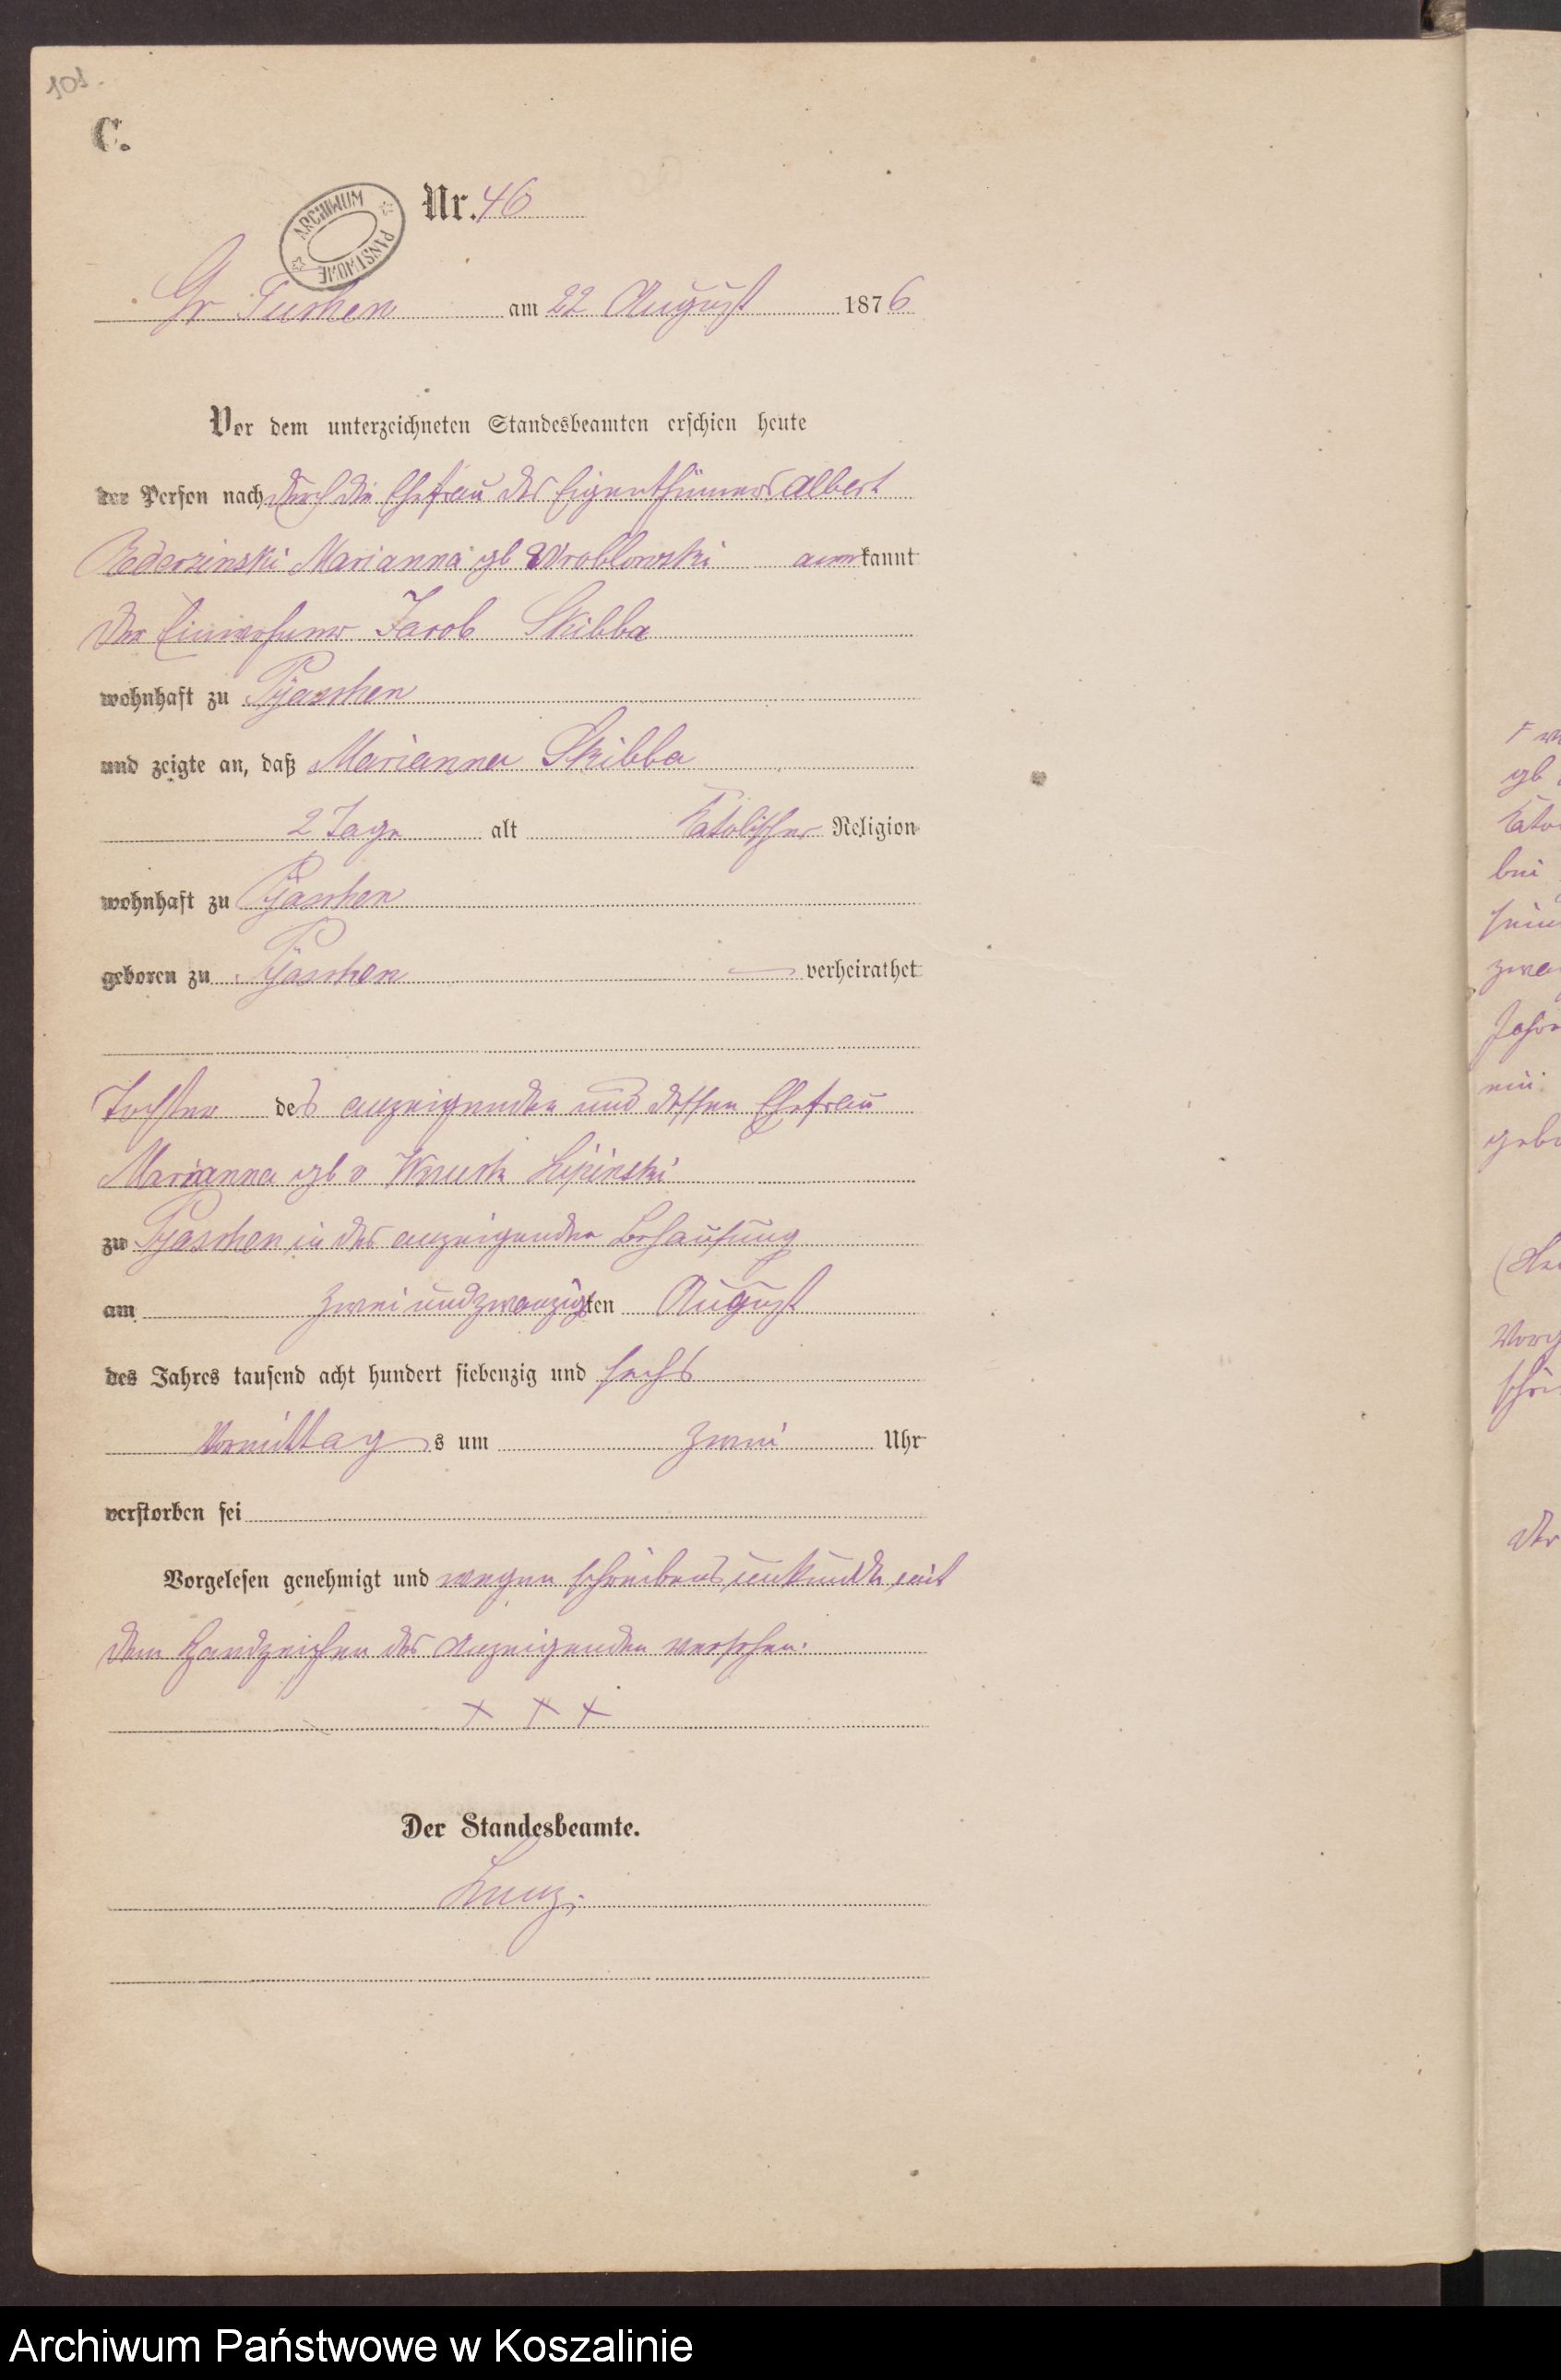 101.
C.
ARCHIWUM PAŃSTWOWE
Nr. 46
Gr Tuchen am 22 August 1876
Vor dem unterzeichneten Standesbeamten erschien heute
der Person nach durch die Ehefrau des Eigenthümers Albert
Rederzinski Marianna gb Wroblowski anerkannt
der Einwohner Jacob Skibba
wohnhaft zu Pyaschen
und zeigte an, daß Marianna Skibba
2 Tage alt katolischer Religion
wohnhaft zu Pyaschen
geboren zu Pyaschen — verheirathet
Tochter des anzeigenden und dessen Ehefrau
Marianna gb v Wnuck Lipinski
zu Pyaschen in des anzeigenden Behausung
am zwei und zwanzigsten August
des Jahres tausend acht hundert siebenzig und sechs
Vormittag s um zwei Uhr
verstorben sei
Vorgelesen genehmigt und wegen schreibens unkunde mit
dem Handzeichen des Anzeigenden versehen.
+ + +
Der Standesbeamte.
gb
zwe
Der
Archiwum Państwowe w Koszalinie